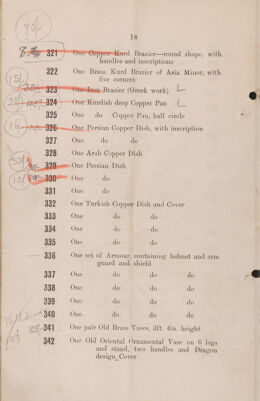 18
321 One Copper Kurd Brazier—round shape, with
handles and inscriptions
322 One Brass Kurd Brazier of Asia Minor, with
five corners
323 One Iron Brazier (Greek work)
324 One Kurdish deep Copper Pan
325 One do Copper Pan, half circle
326 One Persian Copper Dish, with inscription
327 One do do
328 One Arab Copper Dish
329 One Persian Dish
330 One do
331 One do
332 One Turkish Copper Dish and Cover
333 One do do do
334 One do do do
335 One do do do
336 One set of Armour, containing helmet and arm
guard and shield
337 One do do do
338 One do do do
339 One do do do
340 One do do do
341 One pair Old Brass Vases, 3ft. 4in. height
342 One Old Oriental Ornamental Vase on 6 legs
and stand, two handles and Dragon
design Cover